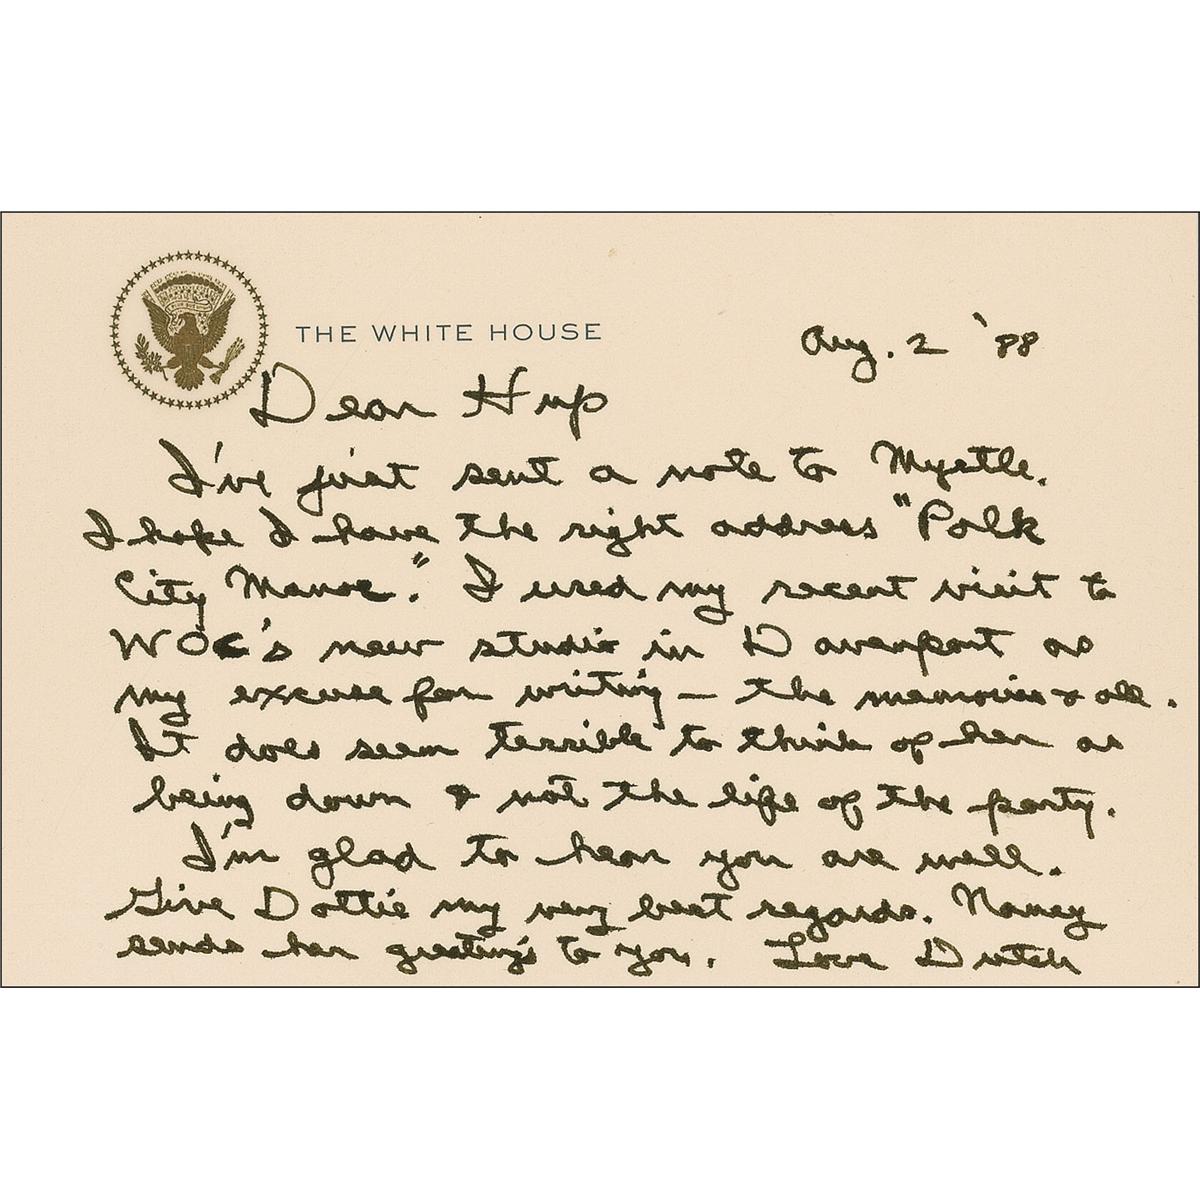 THE WHITE HOUSE
Aug. 2 '88
Dear Hup
I've just sent a note to Myrtle.
I hope I have the right address "Polk
City Manor." I used my recent visit to
WOC's new studio in Davenport as
my excuse for writing — the memories & all.
It does seem terrible to think of her as
being down & not the life of the party.
I'm glad to hear you are well.
Give Dottie my very best regards. Nancy
sends her greetings to you. Love Dutch